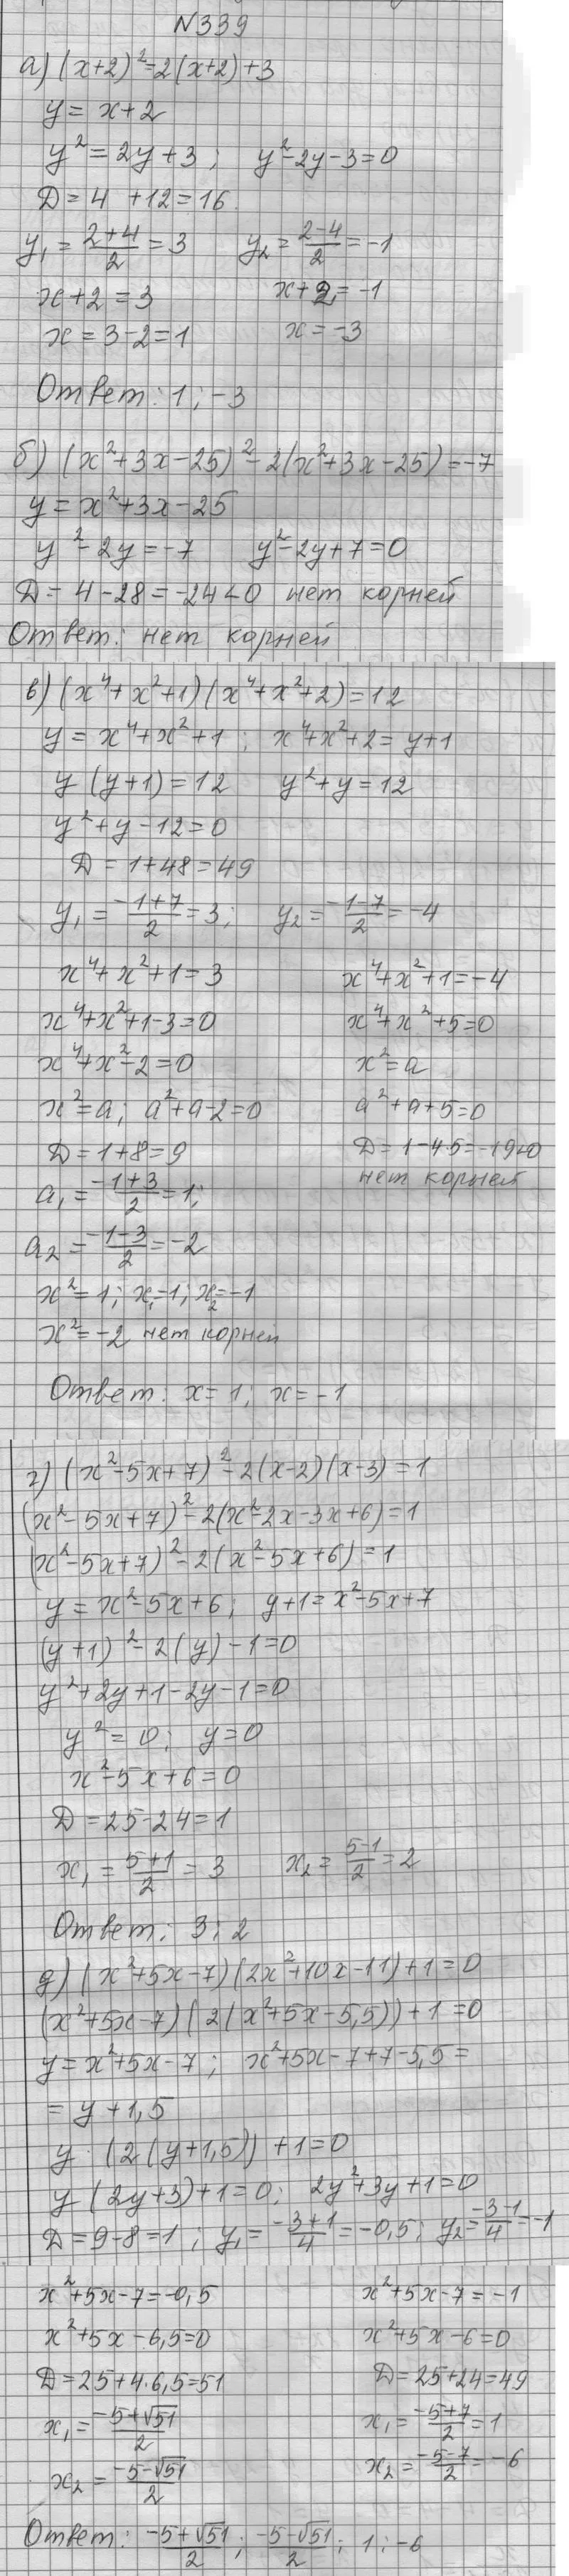 N339
а) (x+2)²=2(x+2)+3
y = x+2
y² = 2y+3; y²-2y-3=0
D = 4 +12=16
y₁ = (2+4)/2 = 3 y₂ = (2-4)/2 = -1
x+2 = 3 x+2 = -1
x = 3-2=1 x = -3
Ответ: 1; -3
б) (x²+3x-25)²-2(x²+3x-25)=-7
y = x²+3x-25
y²-2y=-7 y²-2y+7=0
D = 4-28=-24<0 нет корней
Ответ: нет корней
в) (x⁴+x²+1)(x⁴+x²+2)=12
y = x⁴+x²+1; x⁴+x²+2=y+1
y(y+1)=12 y²+y=12
y²+y-12=0
D = 1+48=49
y₁ = (-1+7)/2 = 3; y₂ = (-1-7)/2 = -4
x⁴+x²+1=3 x⁴+x²+1=-4
x⁴+x²+1-3=0 x⁴+x²+5=0
x⁴+x²-2=0 x²=a
x²=a; a²+a-2=0 a²+a+5=0
D=1+8=9 D=1-4·5=-19<0
a₁ = (-1+3)/2 = 1; нет корней
a₂ = (-1-3)/2 = -2
x²=1; x₁=1; x₂=-1
x²=-2 нет корней
Ответ: x=1; x=-1
г) (x²-5x+7)²-2(x-2)(x-3)=1
(x²-5x+7)²-2(x²-2x-3x+6)=1
(x²-5x+7)²-2(x²-5x+6)=1
y = x²-5x+6; y+1=x²-5x+7
(y+1)²-2(y)-1=0
y²+2y+1-2y-1=0
y²=0; y=0
x²-5x+6=0
D=25-24=1
x₁ = (5+1)/2 = 3 x₂ = (5-1)/2 = 2
Ответ: 3; 2
д) (x²+5x-7)(2x²+10x-11)+1=0
(x²+5x-7)(2(x²+5x-5,5))+1=0
y=x²+5x-7; x²+5x-7+7-5,5=
= y+1,5
y·(2(y+1,5))+1=0
y(2y+3)+1=0; 2y²+3y+1=0
D=9-8=1; y₁ = (-3+1)/4 = -0,5; y₂ = (-3-1)/4 = -1
x²+5x-7=-0,5 x²+5x-7=-1
x²+5x-6,5=0 x²+5x-6=0
D=25+4·6,5=51 D=25+24=49
x₁ = (-5+√51)/2 x₁ = (-5+7)/2 = 1
x₂ = (-5-√51)/2 x₂ = (-5-7)/2 = -6
Ответ: (-5+√51)/2; (-5-√51)/2; 1; -6